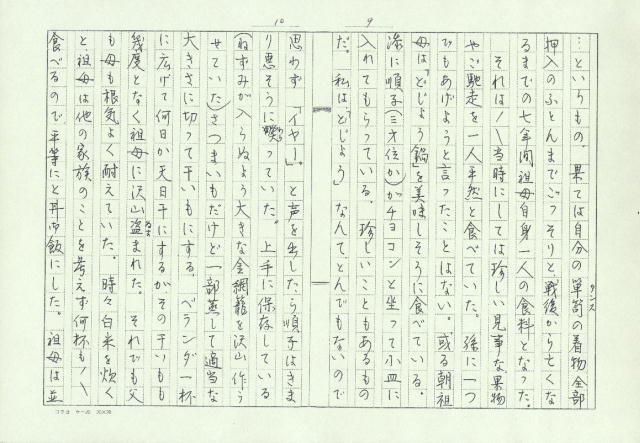 9
…というもの、果ては自分の箪笥の着物全部
タンス
押入のふとんまでごっそりと戦後から亡くな
るまでの七年間祖母自身一人の食料となった。
それは〳〵当時にしては珍しい見事な果物
やご馳走を一人平然と食べていた。孫に一つ
でもあげようと言ったことはない。或る朝祖
母は「どじょう鍋」を美味しそうに食べている。
添に順子(三才位か)がチョコンと坐って小皿に
入れてもらっている。珍しいこともあるもの
だ。私は「どじょう」なんてとんでもないので
10
思わず「イヤー」。と声を出したら順子はきま
り悪そうに喋っていた。上手に保存している
(ねずみが入らぬよう大きな金網籠を沢山作ら
せていた)さつまいもだけど一部蒸して適当な
大きさに切って干いもにする。ベランダ一杯
に広げて何日か天日干にするがその干いもも
幾度となく祖母に沢山盗まれた。それでも父
も母も根気よく耐えていた。時々白米を炊く
と祖母は他の家族のことを考えず何杯も〳〵
食べるので平等にと丼御飯にした。祖母は並
コクヨ ケー20 20×20